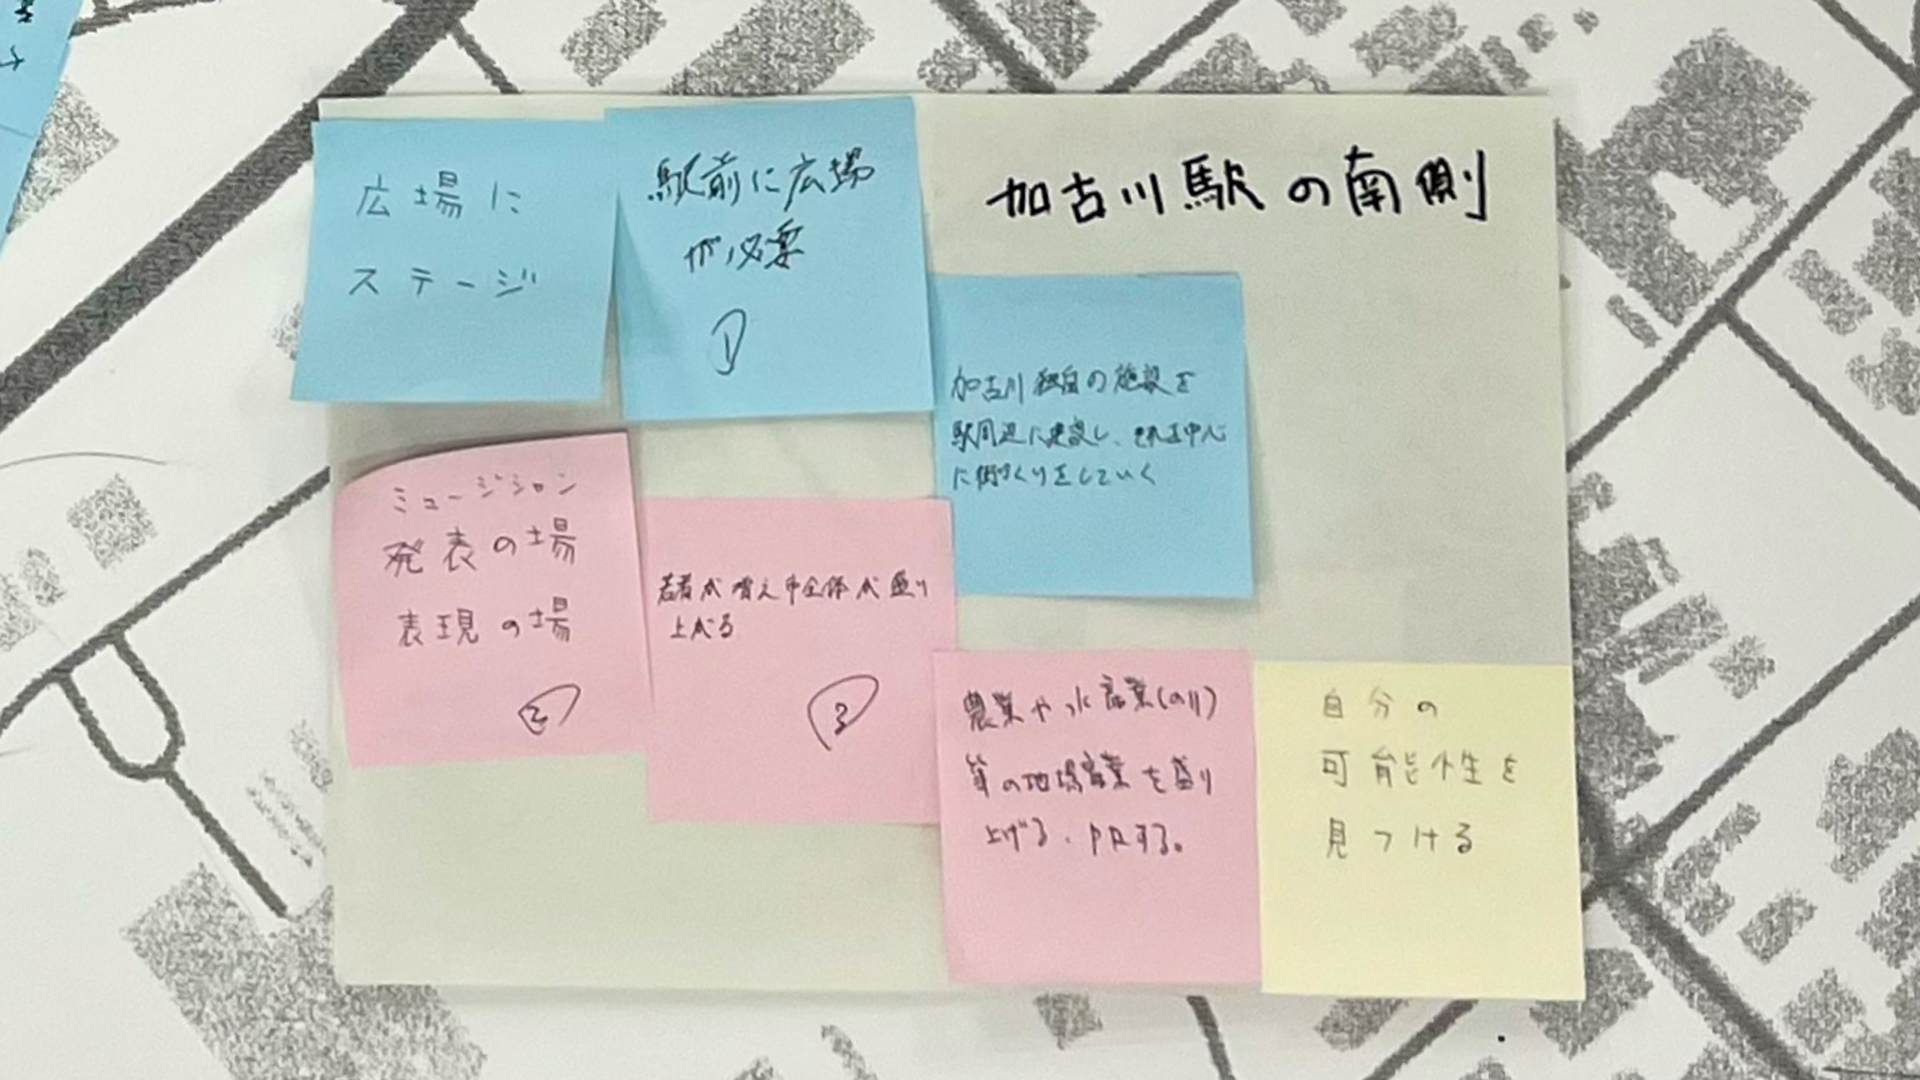 加古川駅の南側
広場に
ステージ
駅前に広場
が必要
①
加古川独自の施設を
駅周辺に建設し、それを中心
に街づくりをしていく
ミュージション
発表の場
表現の場
②
若者が増え市全体が盛り
上がる
③
農業や水産業(のり)
等の地場産業を盛り
上げる、PRする。
自分の
可能性を
見つける